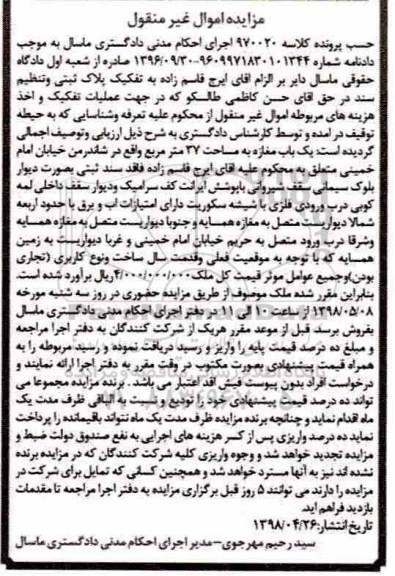 مزایده اموال غیر منقول
حسب پرونده کلاسه ۹۷۰۰۲۰ اجرای احکام مدنی دادگستری ماسال به موجب
دادنامه شماره ۹۶۰۹۹۷۱۸۳۰۱۰۱۳۴۴-۱۳۹۶/۰۹/۳۰ صادره از شعبه اول دادگاه
حقوقی ماسال دایر بر الزام اقای ایرج قاسم زاده به تفکیک پلاک ثبتی وتنظیم
سند در حق اقای حسن کاظمی طالسکو که در جهت عملیات تفکیک و اخذ
هزینه های مربوطه اموال غیر منقول از محکوم علیه تعرفه وشناسایی که به حیطه
توقیف در امده و توسط کارشناس دادگستری به شرح ذیل ارزیابی وتوصیف اجمالی
گردیده است: یک باب مغازه به مساحت ۳۷ متر مربع واقع در شاندرمن خیابان امام
خمینی متعلق به محکوم علیه اقای ایرج قاسم زاده فاقد سند ثبتی بصورت دیوار
بلوک سیمانی سقف شیروانی باپوشش ایرانت کف سرامیک ودیوار سقف داخلی لمبه
کوبی درب ورودی فلزی با شیشه سکوریت دارای امتیازات اب و برق با حدود اربعه
شمالا دیواریست متصل به مغازه همسایه و جنوبا دیواریست متصل به مغازه همسایه
وشرقا درب ورود متصل به حریم خیابان امام خمینی و غربا دیواریست به زمین
همسایه که با توجه به موقعیت فعلی وقدمت سال ساخت ونوع کاربری (تجاری
بودن)وجمیع عوامل موثر قیمت کل ملک ۴/۰۰۰/۰۰۰/۰۰۰ریال برآورد شده است.
بنابراین مقرر شده ملک موصوف از طریق مزایده حضوری در روز سه شنبه مورخه
۱۳۹۸/۰۵/۰۸ از ساعت ۱۰ الی ۱۱ در دفتر اجرای احکام مدنی دادگستری ماسال
بفروش برسد. قبل از موعد مقرر هریک از شرکت کنندگان به دفتر اجرا مراجعه
و مبلغ ده درصد قیمت پایه را واریز و رسید دریافت نموده و رسید مربوطه را به
همراه قیمت پیشنهادی بصورت مکتوب در وقت مقرر به دفتر اجرا ارائه نمایند و
درخواست افراد بدون پیوست فیش اقد اعتبار می باشد . برنده مزایده مجموعا می
تواند ده درصد قیمت پیشنهادی خود را تودیع و نسبت به الباقی ظرف مدت یک
ماه اقدام نماید و چنانچه برنده مزایده ظرف مدت یک ماه نتواند باقیمانده را پرداخت
نماید ده درصد واریزی پس از کسر هزینه های اجرایی به نفع صندوق دولت ضبط و
مزایده تجدید خواهد شد و وجوه واریزی کلیه شرکت کنندگان که در مزایده برنده
نشده اند نیز به آنها مسترد خواهد شد و همچنین کسانی که تمایل برای شرکت در
مزایده را دارند می توانند ۵ روز قبل برگزاری مزایده به دفتر اجرا مراجعه تا مقدمات
بازدید فراهم اید.
تاریخ انتشار:۱۳۹۸/۰۴/۲۶
سید رحیم مهرجوی-مدیر اجرای احکام مدنی دادگستری ماسال